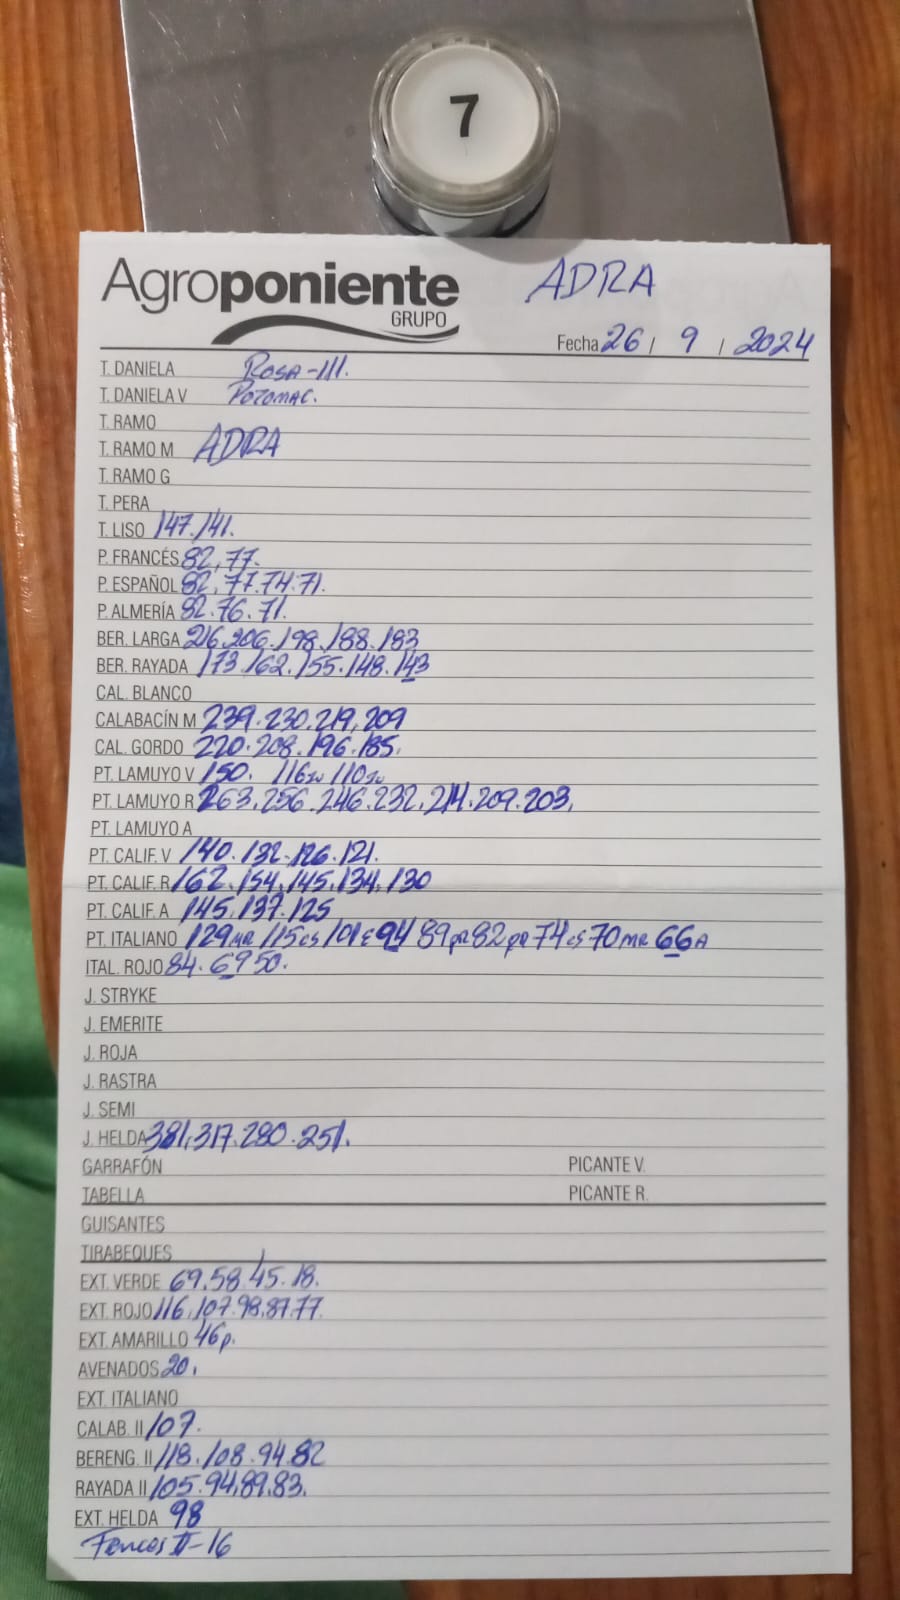 7
Agroponiente
GRUPO
ADRA
Fecha 26 / 9 / 2024
T. DANIELA ROSA-111.
T. DANIELA V POTOMAC.
T. RAMO
T. RAMO M ADRA
T. RAMO G
T. PERA
T. LISO 147.141.
P. FRANCÉS 82,77.
P. ESPAÑOL 82,77.74.71.
P. ALMERÍA 82.76.71.
BER. LARGA 216.206.198.188.183
BER. RAYADA 173.162.155.148.143
CAL. BLANCO
CALABACÍN M 239.230.219,209
CAL. GORDO 220.208.196.185.
PT. LAMUYO V 150. 116 110
PT. LAMUYO R 263.256.246.232.214.209.203,
PT. LAMUYO A
PT. CALIF. V 140.132.126.121.
PT. CALIF. R 162.154.145.134.130
PT. CALIF. A 145.137.125
PT. ITALIANO 129MR 115CS 101E 94 89 82 74CS 70MR 66A
ITAL. ROJO 84.69 50.
J. STRYKE
J. EMERITE
J. ROJA
J. RASTRA
J. SEMI
J. HELDA 381,317.280.251.
GARRAFÓN PICANTE V.
TABELLA PICANTE R.
GUISANTES
TIRABEQUES
EXT. VERDE 69.58.45.18.
EXT. ROJO 116,107.98.87.77.
EXT. AMARILLO 46p.
AVENADOS 20.
EXT. ITALIANO
CALAB. II 107.
BERENG. II 118.108.94.82
RAYADA II 105.94.89.83.
EXT. HELDA 98
II-16